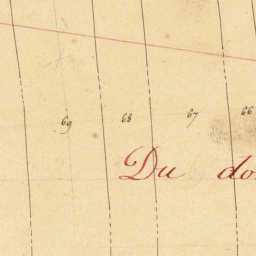 69 68 67 66
Du do